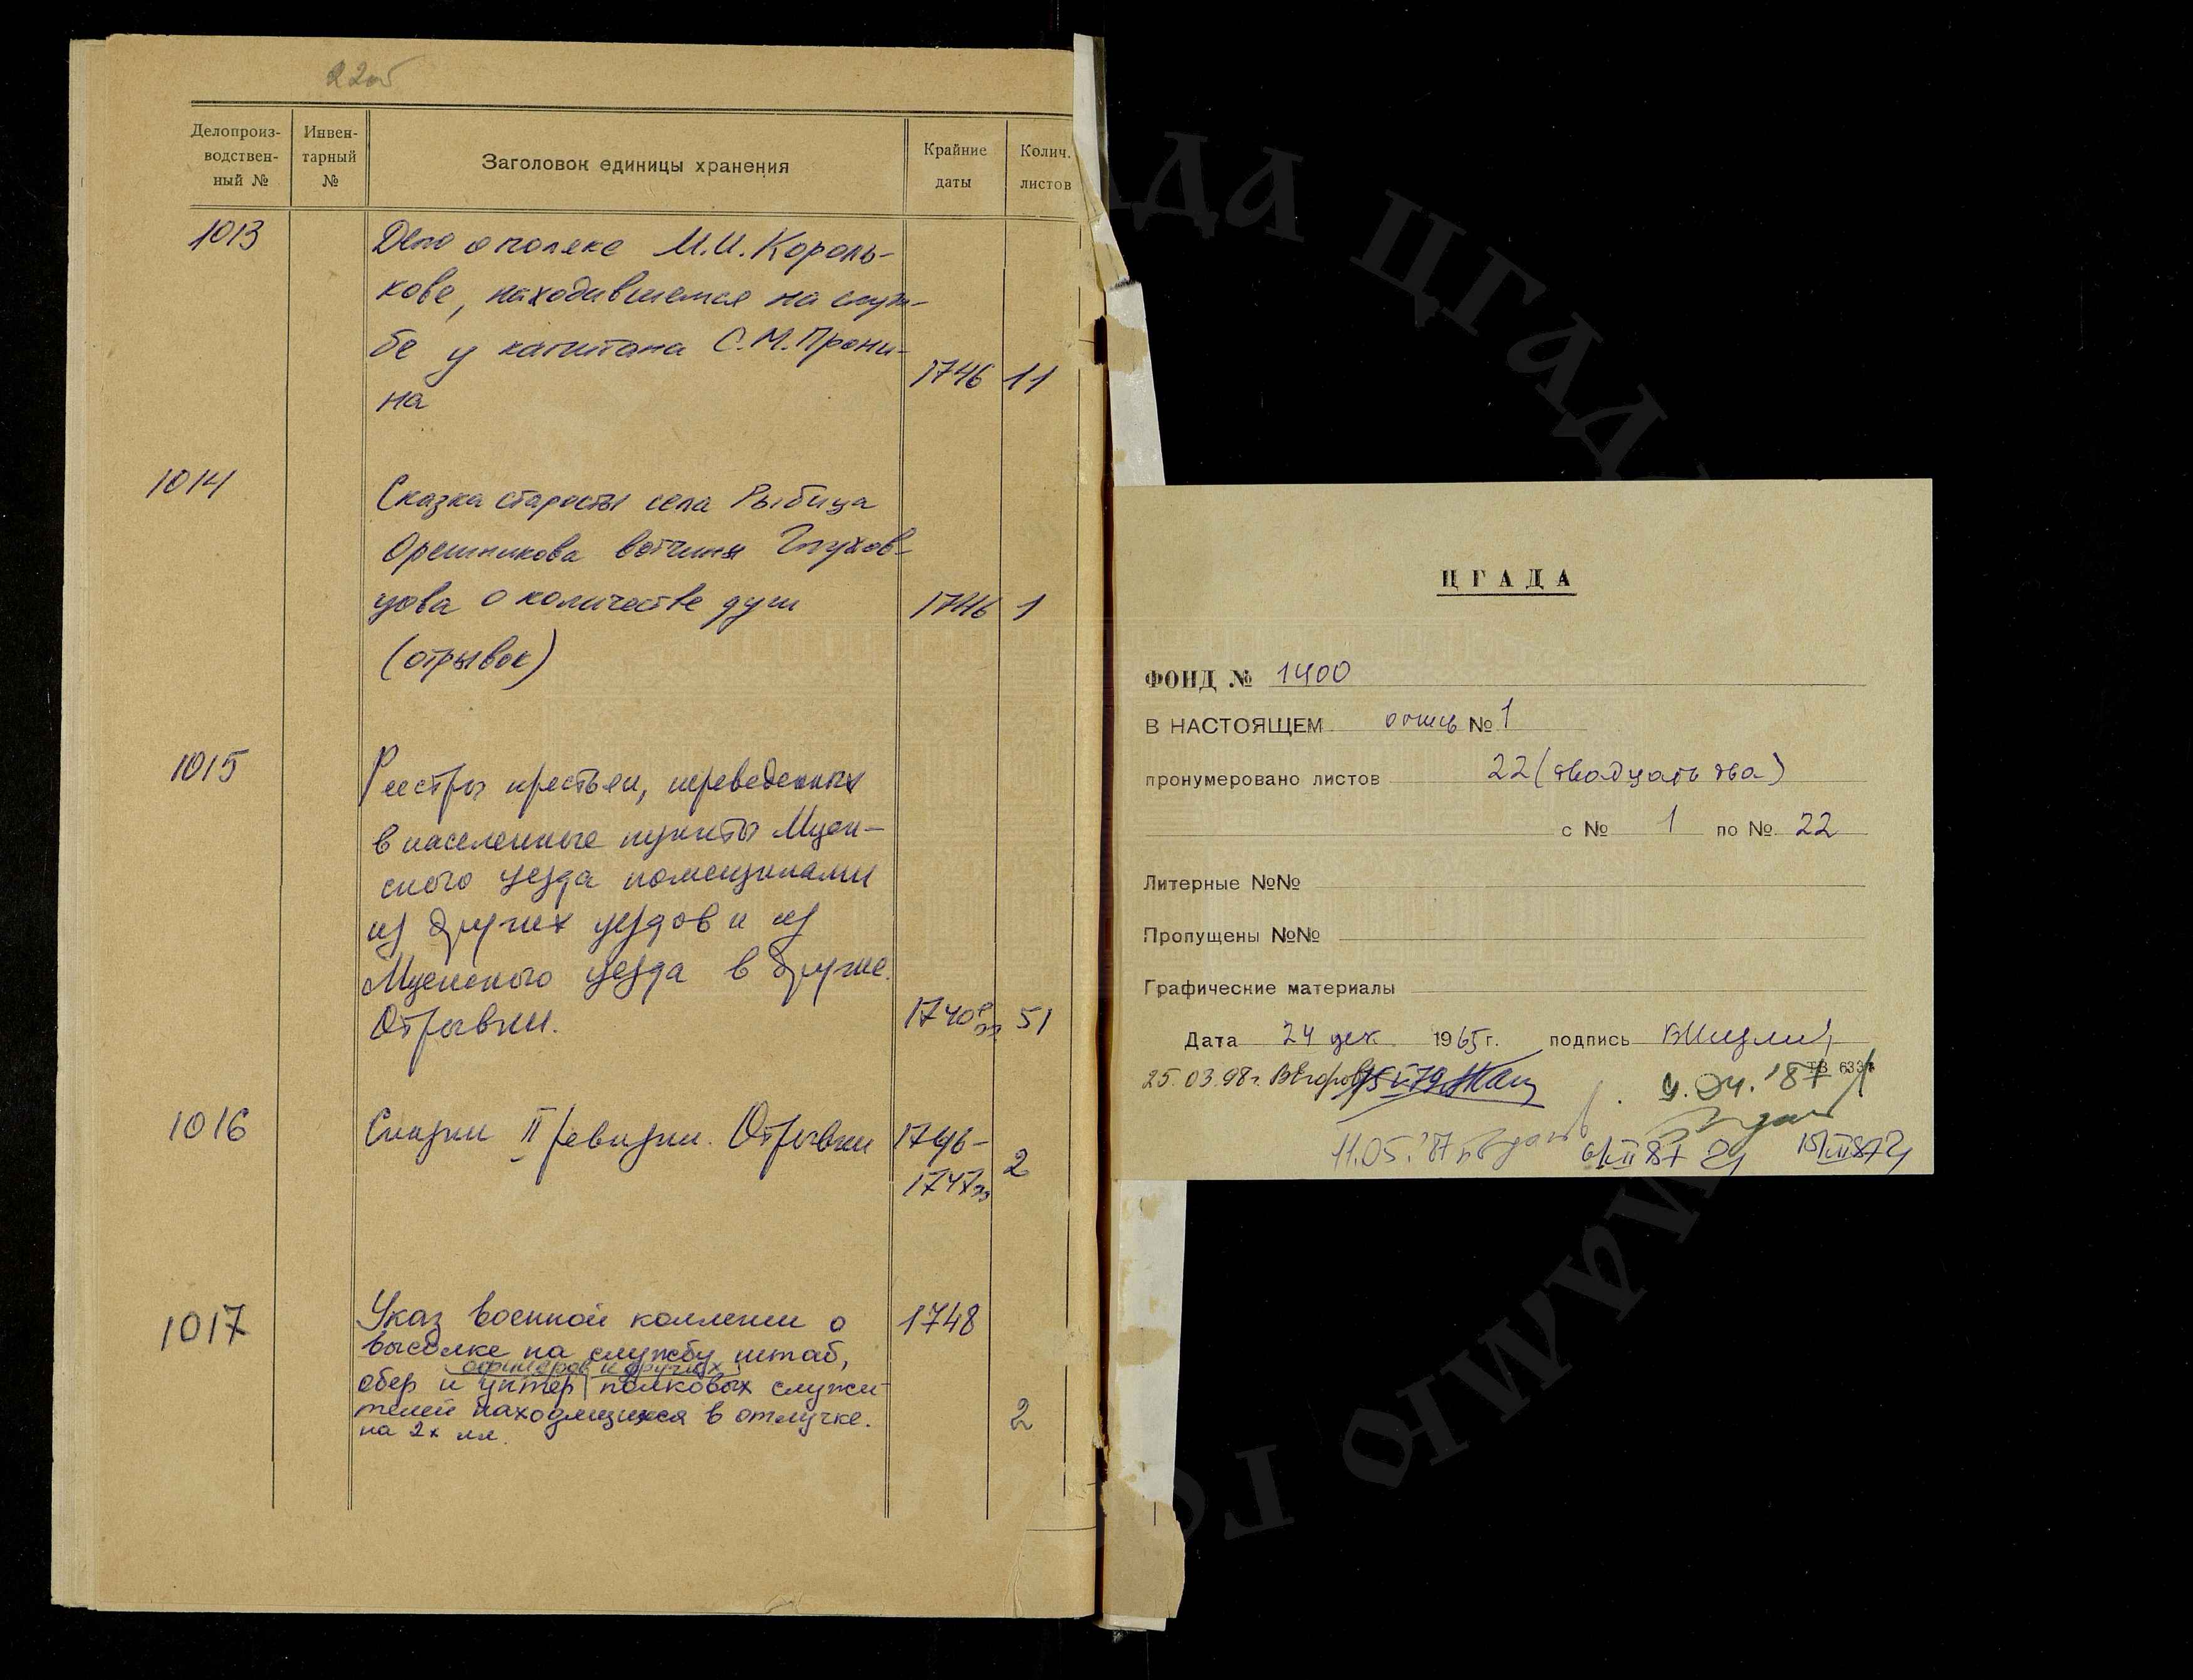 22об
Делопроиз-
водствен-
ный №
Инвен-
тарный
№
Заголовок единицы хранения
Крайние
даты
Колич.
листов
1013
Дело о поляке М.И. Король-
кове, находившемся на служ-
бе у капитана С.М. Прони-
на
1746 11
1014
Сказка старосты села Рыбица
Орешникова вотчины Глухов-
цова о количестве душ
(отрывок)
1746 1
1015
Реестры крестьян, переведенных
в населенные пункты Мцен-
ского уезда помещиками
из других уездов и из
Мценского уезда в другие.
Отрывки.
1740е гг 51
1016
Сказки II ревизии. Отрывки
1746-
1747гг
2
1017
Указ военной коллегии о
высылке на службу штаб,
офицеров и других
обер и унтер полковых служи-
телей находящихся в отлучке.
на 2х лл.
1748
2
ЦГАДА
ФОНД № 1400
В НАСТОЯЩЕМ опись № 1
пронумеровано листов 22 (двадцать два)
с № 1 по № 22
Литерные №№
Пропущены №№
Графические материалы
Дата 24 дек. 1965 г. подпись
ТВ 633
25.03.98г.
11.05.'87
ЦГАДА